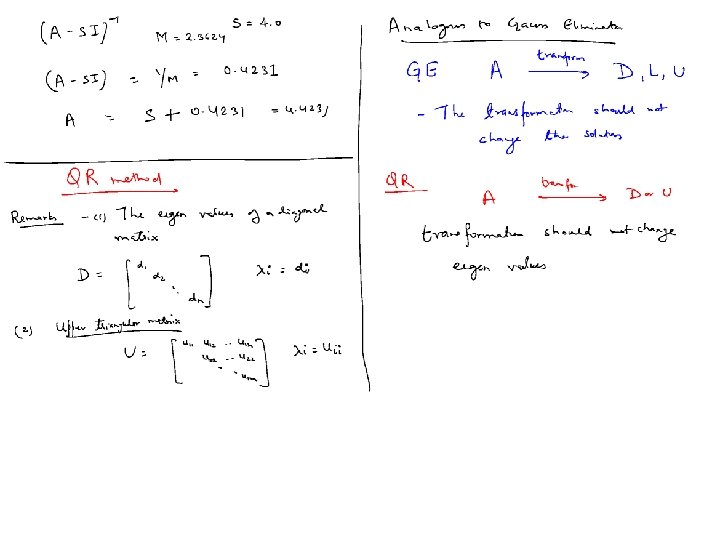 (A-SI)⁻¹ M = 2.3624 S = 4.0
(A-SI) = 1/M = 0.4231
A = S + 0.4231 = 4.4231
QR method
Remark - (1) The eigen values of a diagonal
matrix
D = [d₁ d₂ ⋱ dₙ] λi = di
(2) Upper triangular matrix
U = [u₁₁ u₁₂ .. u₁ₙ
u₂₂ .. u₂₂
⋱ uₙₙ] λi = Uii
Analogous to Gauss Elimination
GE A transform → D, L, U
- The transformation should not
change the solution
QR A → D or U
transformation should not change
eigen values